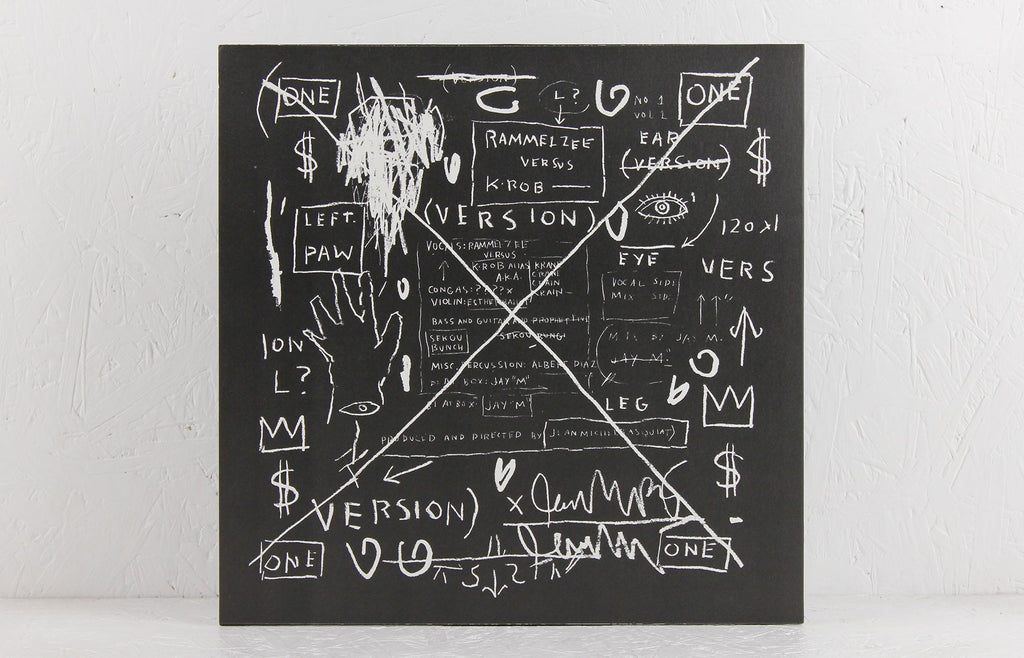 ONE
(VERSION)
L?
NO 1
VOL 1
ONE
$
RAMMELZEE
VERSUS
K-ROB
EAR
(VERSION)
$
LEFT.
PAW
(VERSION)
120 x1
VOCALS: RAMMELZEE
VERSUS
K-ROB ALIAS
A.K.A.
KRANE
CRANE
CRAIN
KRAIN
CONGAS: ????X
VIOLIN: ESTHER
BASS AND GUITAR AND PROPHET LIVE
SEKOU
BUNCH
SEKOU
MISC. PERCUSSION: ALBERT DIAZ
BOX: JAY "M"
BEATBOX: JAY "M"
PRODUCED AND DIRECTED BY JEAN MICHEL BASQUIAT)
EYE
VERS
VOCAL SIDE
MIX SIDE
JAY M.
JAY M:
LEG
ION
L?
$
$
VERSION)
X
ONE
ONE